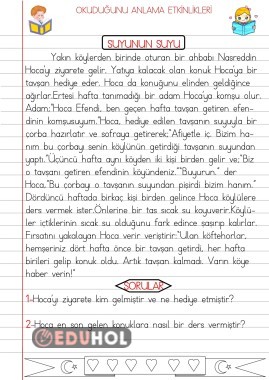 OKUDUĞUNU ANLAMA ETKİNLİKLERİ
SUYUNUN SUYU
Yakın köylerden birinde oturan bir ahbabı Nasreddin
Hoca'yı ziyarete gelir. Yatıya kalacak olan konuk Hoca'ya bir
tavşan hediye eder. Hoca da konuğunu elinden geldiğince
ağırlar.Ertesi hafta tanımadığı bir adam Hoca'ya konuk olur.
Adam;"Hoca Efendi, ben geçen hafta tavşan getiren efen-
dinin komşusuyum."Hoca, hediye edilen tavşanın suyuyla bir
çorba hazırlatır ve sofraya getirerek:"Afiyetle iç. Bizim ha-
nım bu çorbayı senin köylünün getirdiği tavşanın suyundan
yaptı."Üçüncü hafta aynı köyden iki kişi birden gelir ve:"Biz
o tavşanı getiren efendinin köyündeniz.""Buyurun." der
Hoca,"Bu çorbayı o tavşanın suyundan pişirdi bizim hanım."
Dördüncü haftada birkaç kişi birden gelince Hoca köylülere
ders vermek ister.Önlerine bir tas sıcak su koyuverir.Köylü-
ler içtiklerinin sıcak su olduğunu fark edince şaşırıp kalırlar.
Fırsatını yakalayan Hoca verir veriştirir:"Ulan köftehorlar,
hemşeriniz dört hafta önce bir tavşan getirdi, her hafta
birileri gelip konuk oldu. Artık tavşan kalmadı. Varın köye
haber verin!"
SORULAR
1-Hoca'yı ziyarete kim gelmiştir ve ne hediye etmiştir?
2-Hoca en son gelen konuklara nasıl bir ders vermiştir?
EDUHOL